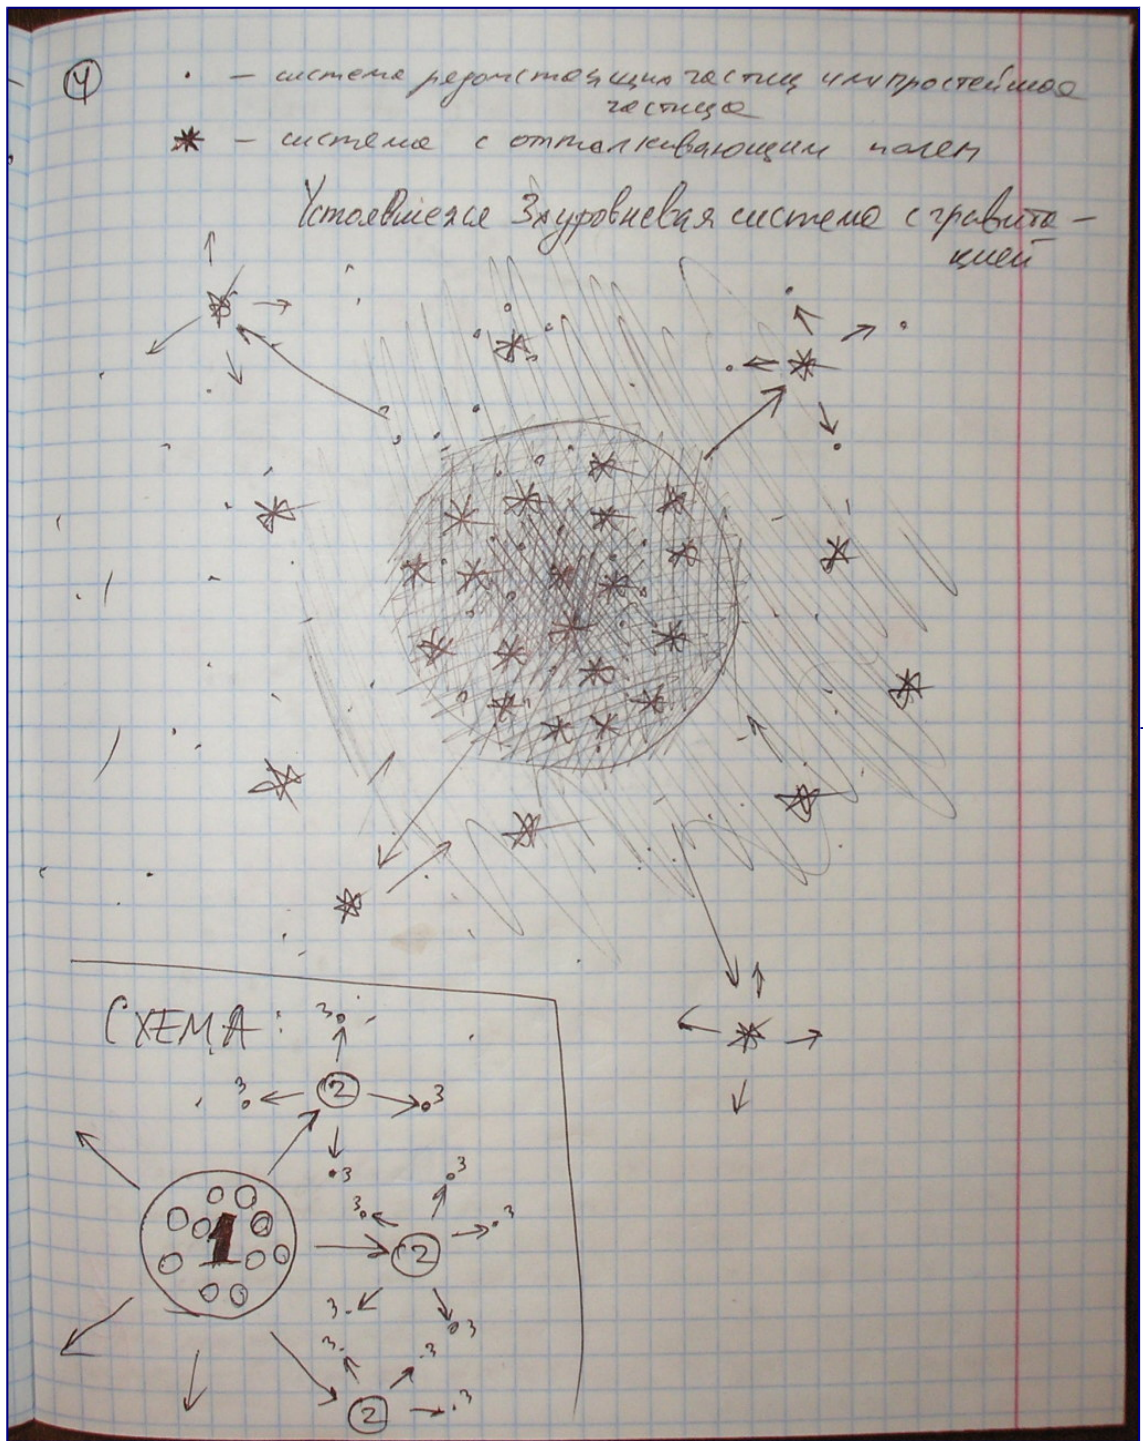 4
. — система рядомстоящих частиц или простейшая
частица
* — система с отталкивающим полем
Устоявшеяся 3х уровневая система с гравита-
цией
СХЕМА:
3
3
2
3
3
3
3
3
1
2
3
3
3
3
3
2